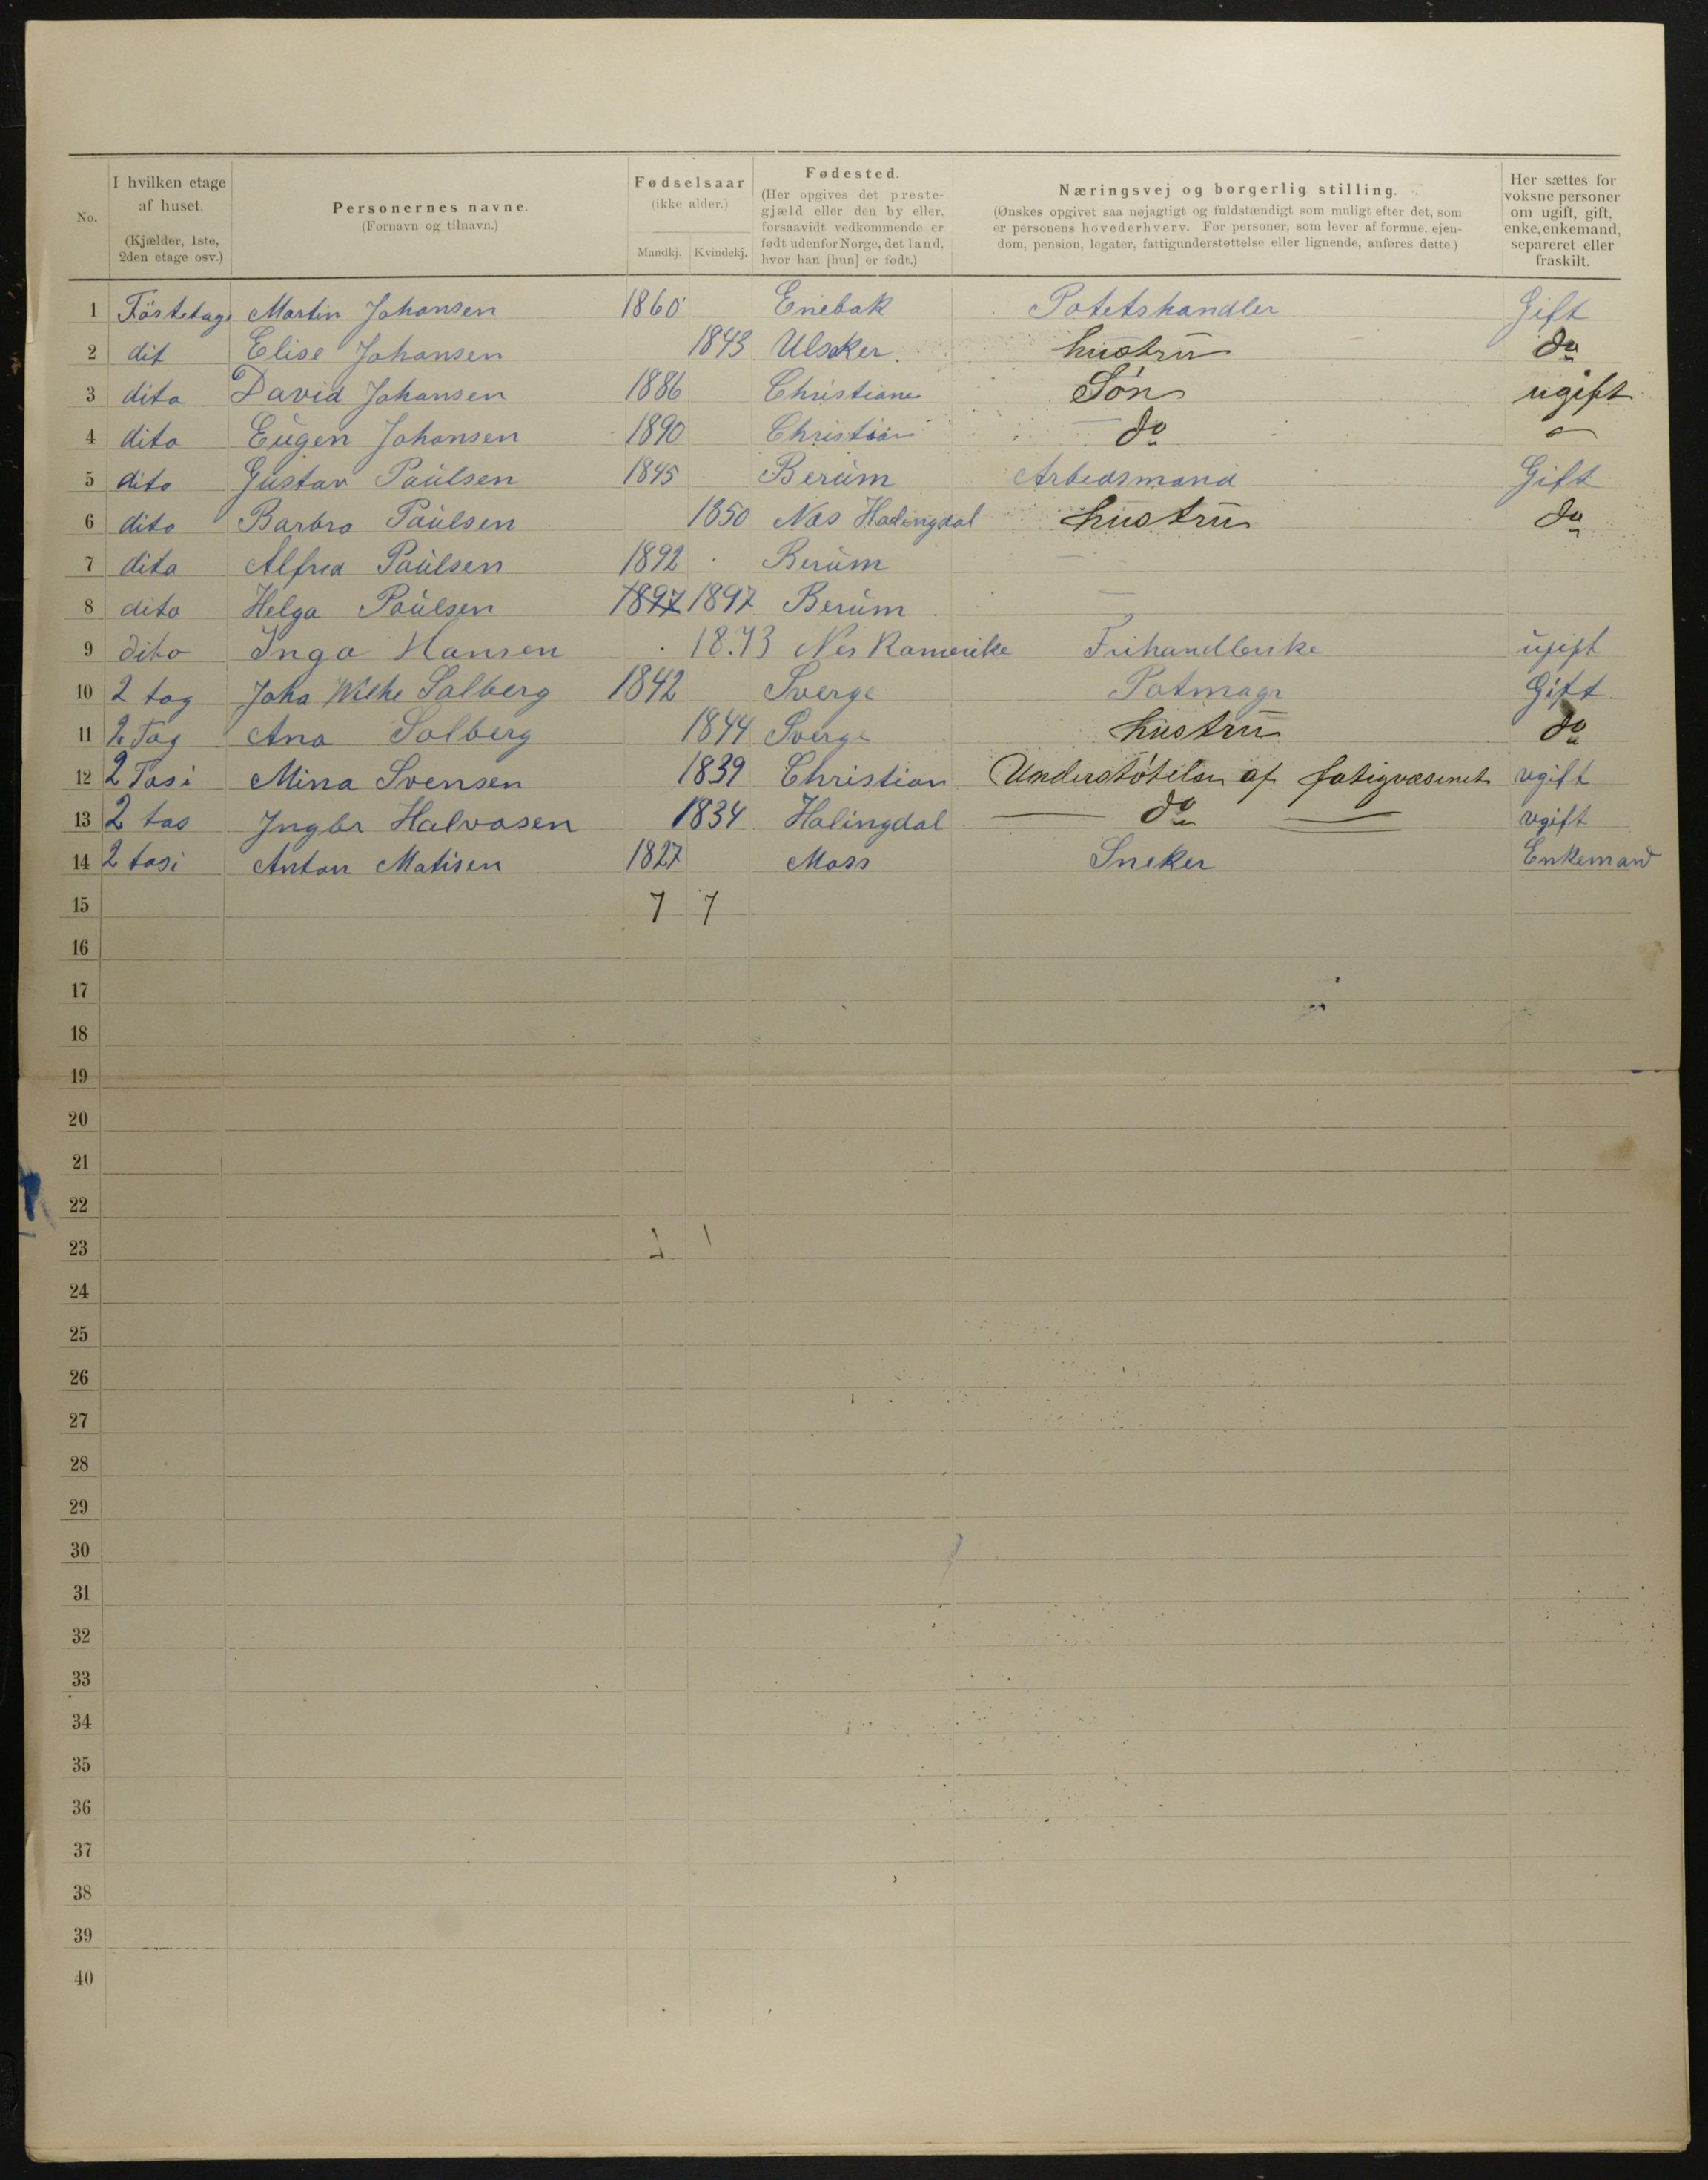 No.
I hvilken etage af huset. (Kjælder, 1ste, 2den etage osv.)
Personernes navne. (Fornavn og tilnavn.)
Fødselsaar (ikke alder.) Mandkj. Kvindekj.
Fødested. (Her opgives det prestegjæld eller den by eller, forsaavidt vedkommende er født udenfor Norge, det land, hvor han [hun] er født.)
Næringsvej og borgerlig stilling. (Ønskes opgivet saa nøjagtigt og fuldstændigt som muligt efter det, som er personens hovederhverv. For personer, som lever af formue, ejendom, pension, legater, fattigunderstøttelse eller lignende, anføres dette.)
Her sættes for voksne personer om ugift, gift, enke, enkemand, separeret eller fraskilt.
1 Föstetage Martin Johansen 1860 Enebak Potetshandler Gift
2 dit Elise Johansen 1843 Ulsaker hustru do
3 dito David Johansen 1886 Christiane Søn ugift
4 dito Eugen Johansen 1890 Christian do
5 dito Gustav Paulsen 1845 Berum Arbedsmand Gift
6 dito Barbro Paulsen 1850 Nas Halingdal hustru do
7 dito Alfred Paulsen 1892 Berum
8 dito Helga Paulsen 1897 1897 Berum
9 dito Inga Hansen 18.73 Nes Romerike Frihandlerske ugift
10 2 tag Joha Wilhe Solberg 1842 Sverge Potmagr Gift
11 2 Tag Ana Solberg 1844 Sverge hustru do
12 2 Tasi Mina Svensen 1839 Christian Understøtelse af fatigvæsenet ugift
13 2 tas Ingbr Halvosen 1834 Halingdal do ugift
14 2 tasi Anton Matisen 1827 Moss Sneker Enkemand
15 7 7
16
17
18
19
20
21
22
23
24
25
26
27
28
29
30
31
32
33
34
35
36
37
38
39
40